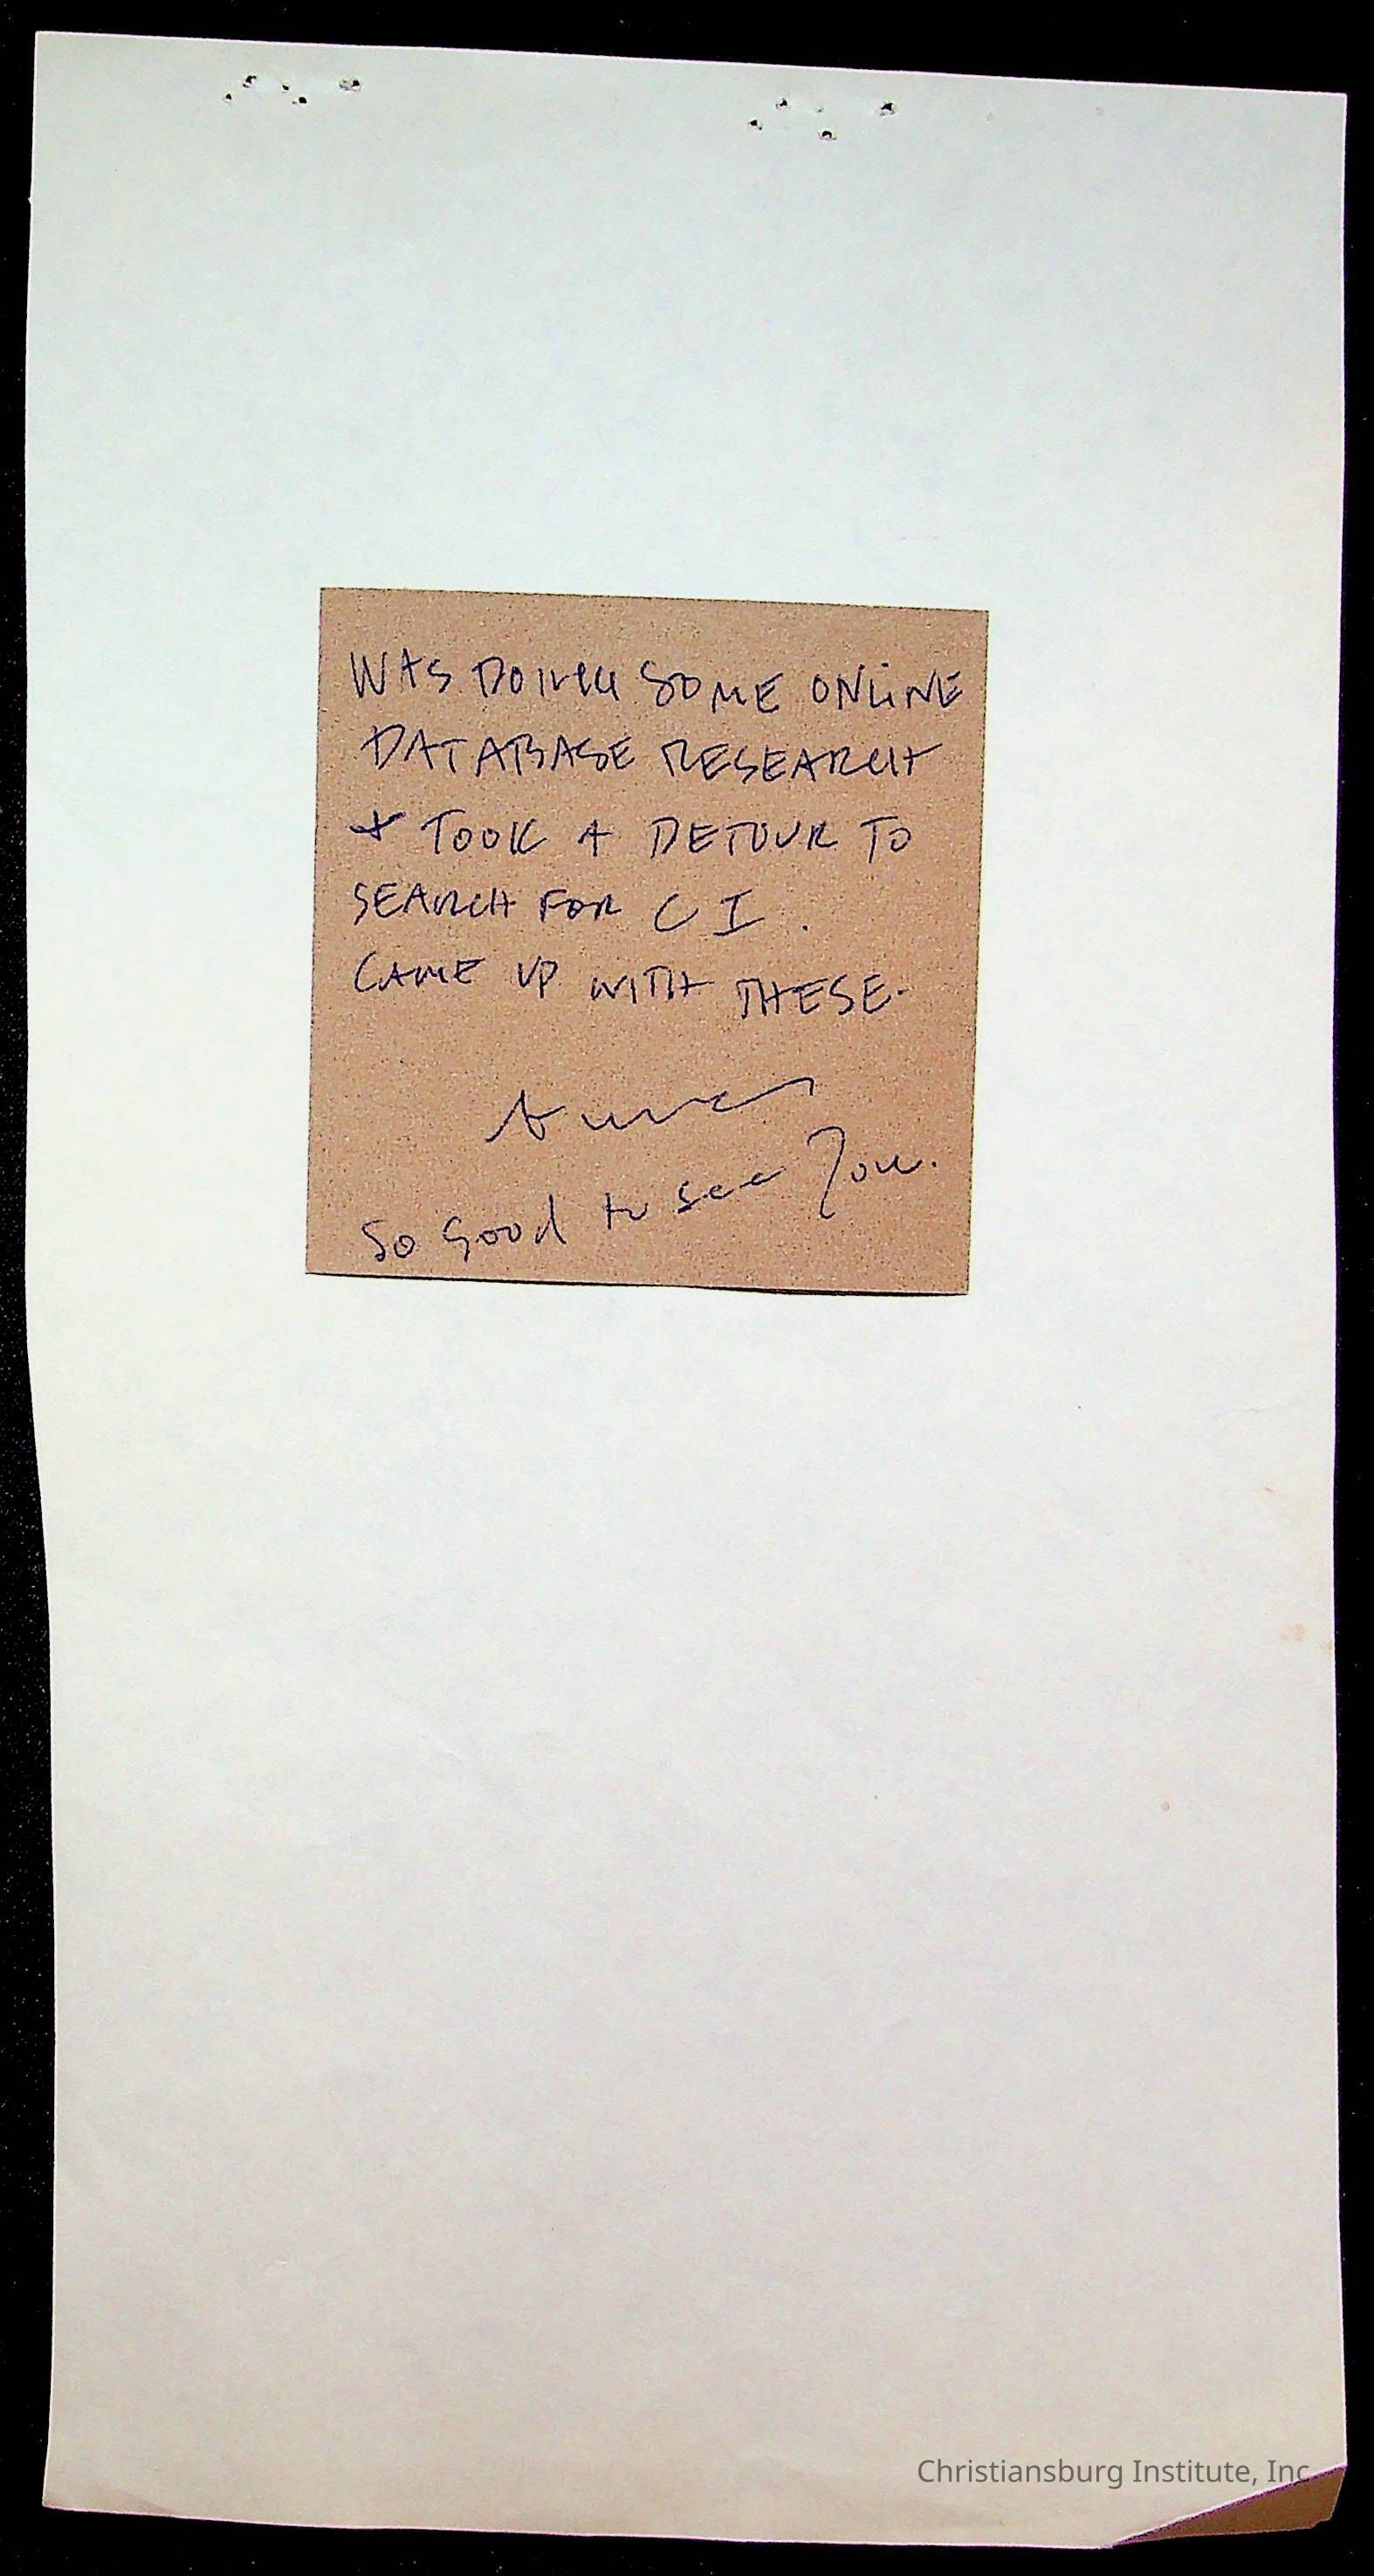 WAS DOING SOME ONLINE
DATABASE RESEARCH
+ TOOK A DETOUR TO
SEARCH FOR C I.
CAME UP WITH THESE.
So good to see you.
Christiansburg Institute, Inc.